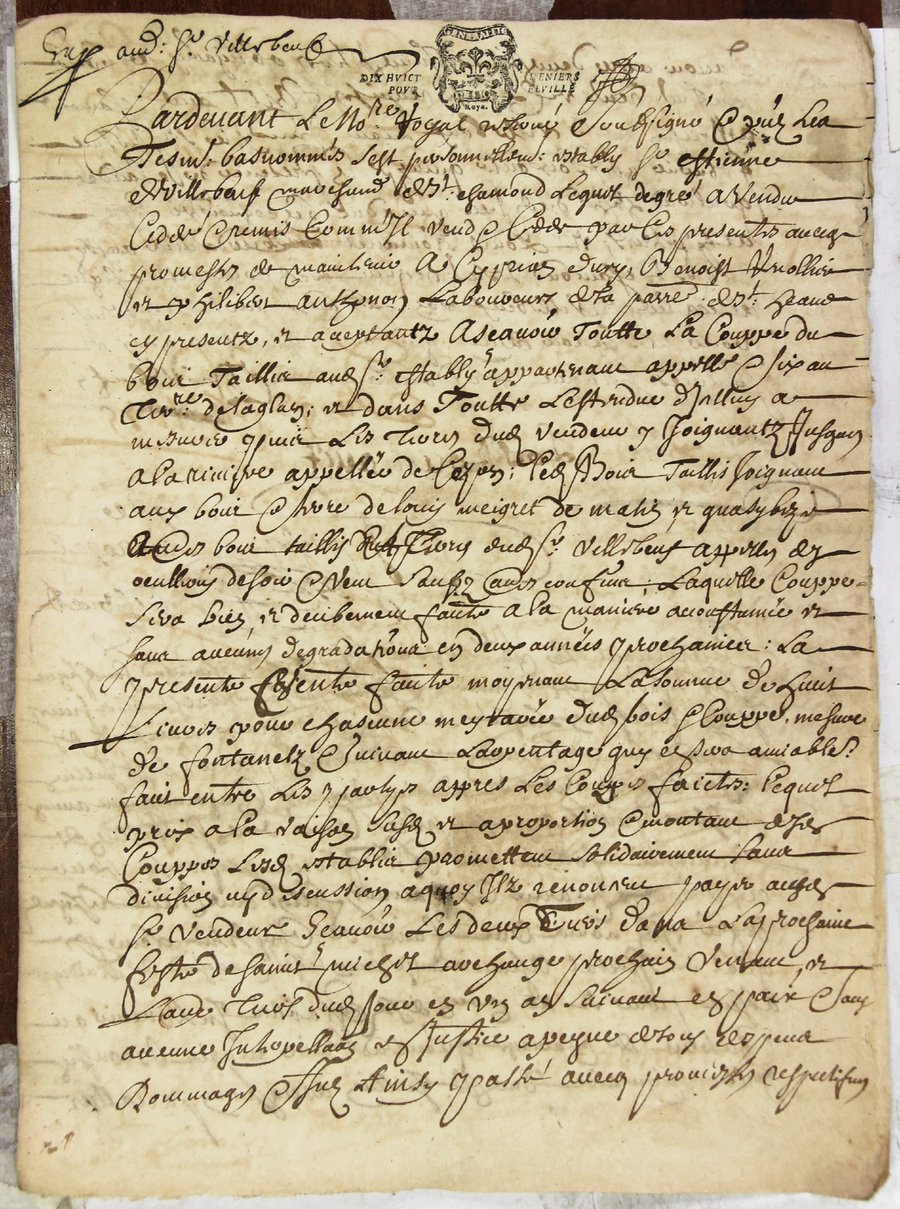 Exp aud: Sr. Villebeuf
GENERALITE
DIX HUICT DENIERS
POUR FEUILLE
Pardevant Le Nore Royal soubsigné & es
Tesmt. basnommés sest personnellemt. estably Sr. estienne
devillebeuf marchand de St. chamond Lequel de gré a Vendu
Cedé & remis Comm'Il vend & Cede par Ces presentes avecq
promesses de maintenir A Cyprien dury, Benoist
et philibert Laboureurs de la parre. de St. Jean
cy presentz, et acceptantz Ascavoir Toutte La Couppe du
bois Taillis aud Sr. estably appartenant appellé Six au
Terre. et dans Toutte Lestendue dicelluy a
Les Terres dud Vendeur y Joignantz Jusques
a la riviere appellée de : led Bois Taillis Joignant
aux bois & terre de louis meigret de matin et
bois taillis & Terres dud Sr. Villebeuf appellés
de soir & Vent sauf ses autres confins; Laquelle Couppe
sera bien et deubement faitte a la maniere accoustumée et
sans aucunes degradations en deux années prochaines: La
presente Vente faitte moyenant La somme de huict
Livres pour chascune meyterée dud bois & Couppe, mesure
de fontanetz & suivant Larpentage quy en sera amiablemt.
fait entre Les partyes appres Les Couppes faictes: Lequel
prix a la raison susd et a proportion & montant desd
Couppes Lesd establis promettent solidairement sans
division ny discussion a quoy Ilz renoncent payer aud
Sr. Vendeur Scavoir Les deux Tiers dans La prochaine
feste de saint michel archange prochain Venant, et
Lautre Tiers dud Jour en un an suivant en paix & sans
aucune Interpellation de Justice a peyne de tous despens
Dommages & Ainsy passé avecq promesses respectives